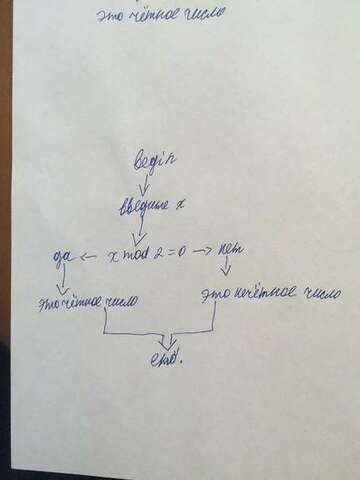 это чётное число
begin
введите x
да ← x mod 2 = 0 → нет
это чётное число это нечётное число
end.